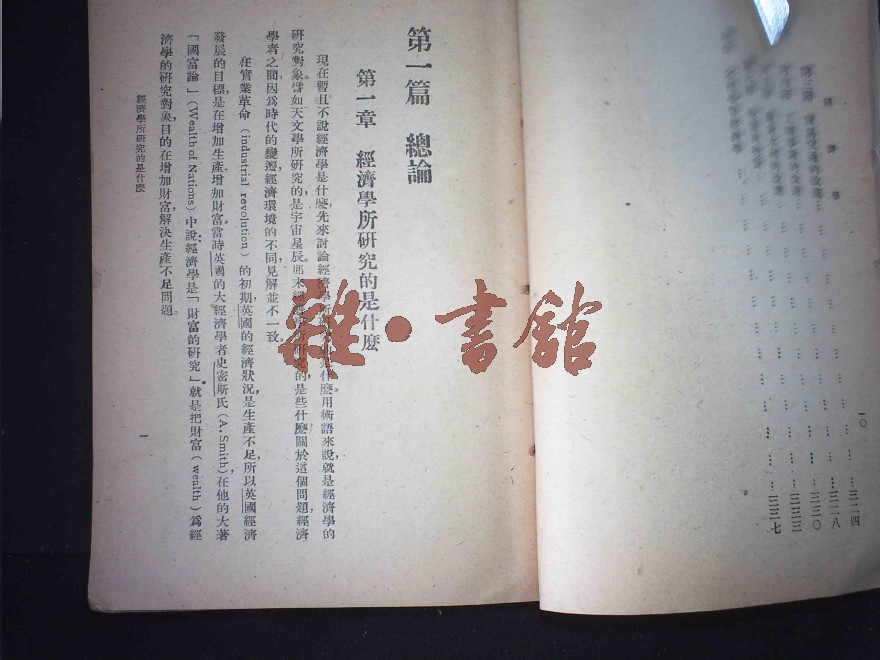 經濟學
一〇
三二四
三二八
三三〇
三三三
三三七
第一篇 總論
第一章 經濟學所研究的是什麼
現在暫且不說經濟學是什麼,先來討論經濟學所研究的是什麼。用術語來說,就是經濟學的
研究對象。譬如天文學所研究的,是宇宙星辰。那末經濟學所研究的,是些什麼?關於這個問題,經濟
學者之間,因爲時代的變遷,經濟環境的不同,見解並不一致。
在實業革命(industrial revolution)的初期,英國的經濟狀況,是生產不足,所以英國經濟
發展的目標,是在增加生產,增加財富。當時英國的大經濟學者史密斯氏(A. Smith),在他的大著
「國富論」(Wealth of Nations)中說:經濟學是「財富的研究」。就是把財富(wealth)爲經
濟學的研究對象,目的在增加財富,解決生產不足問題。
經濟學所研究的是什麼
一
雜·書館